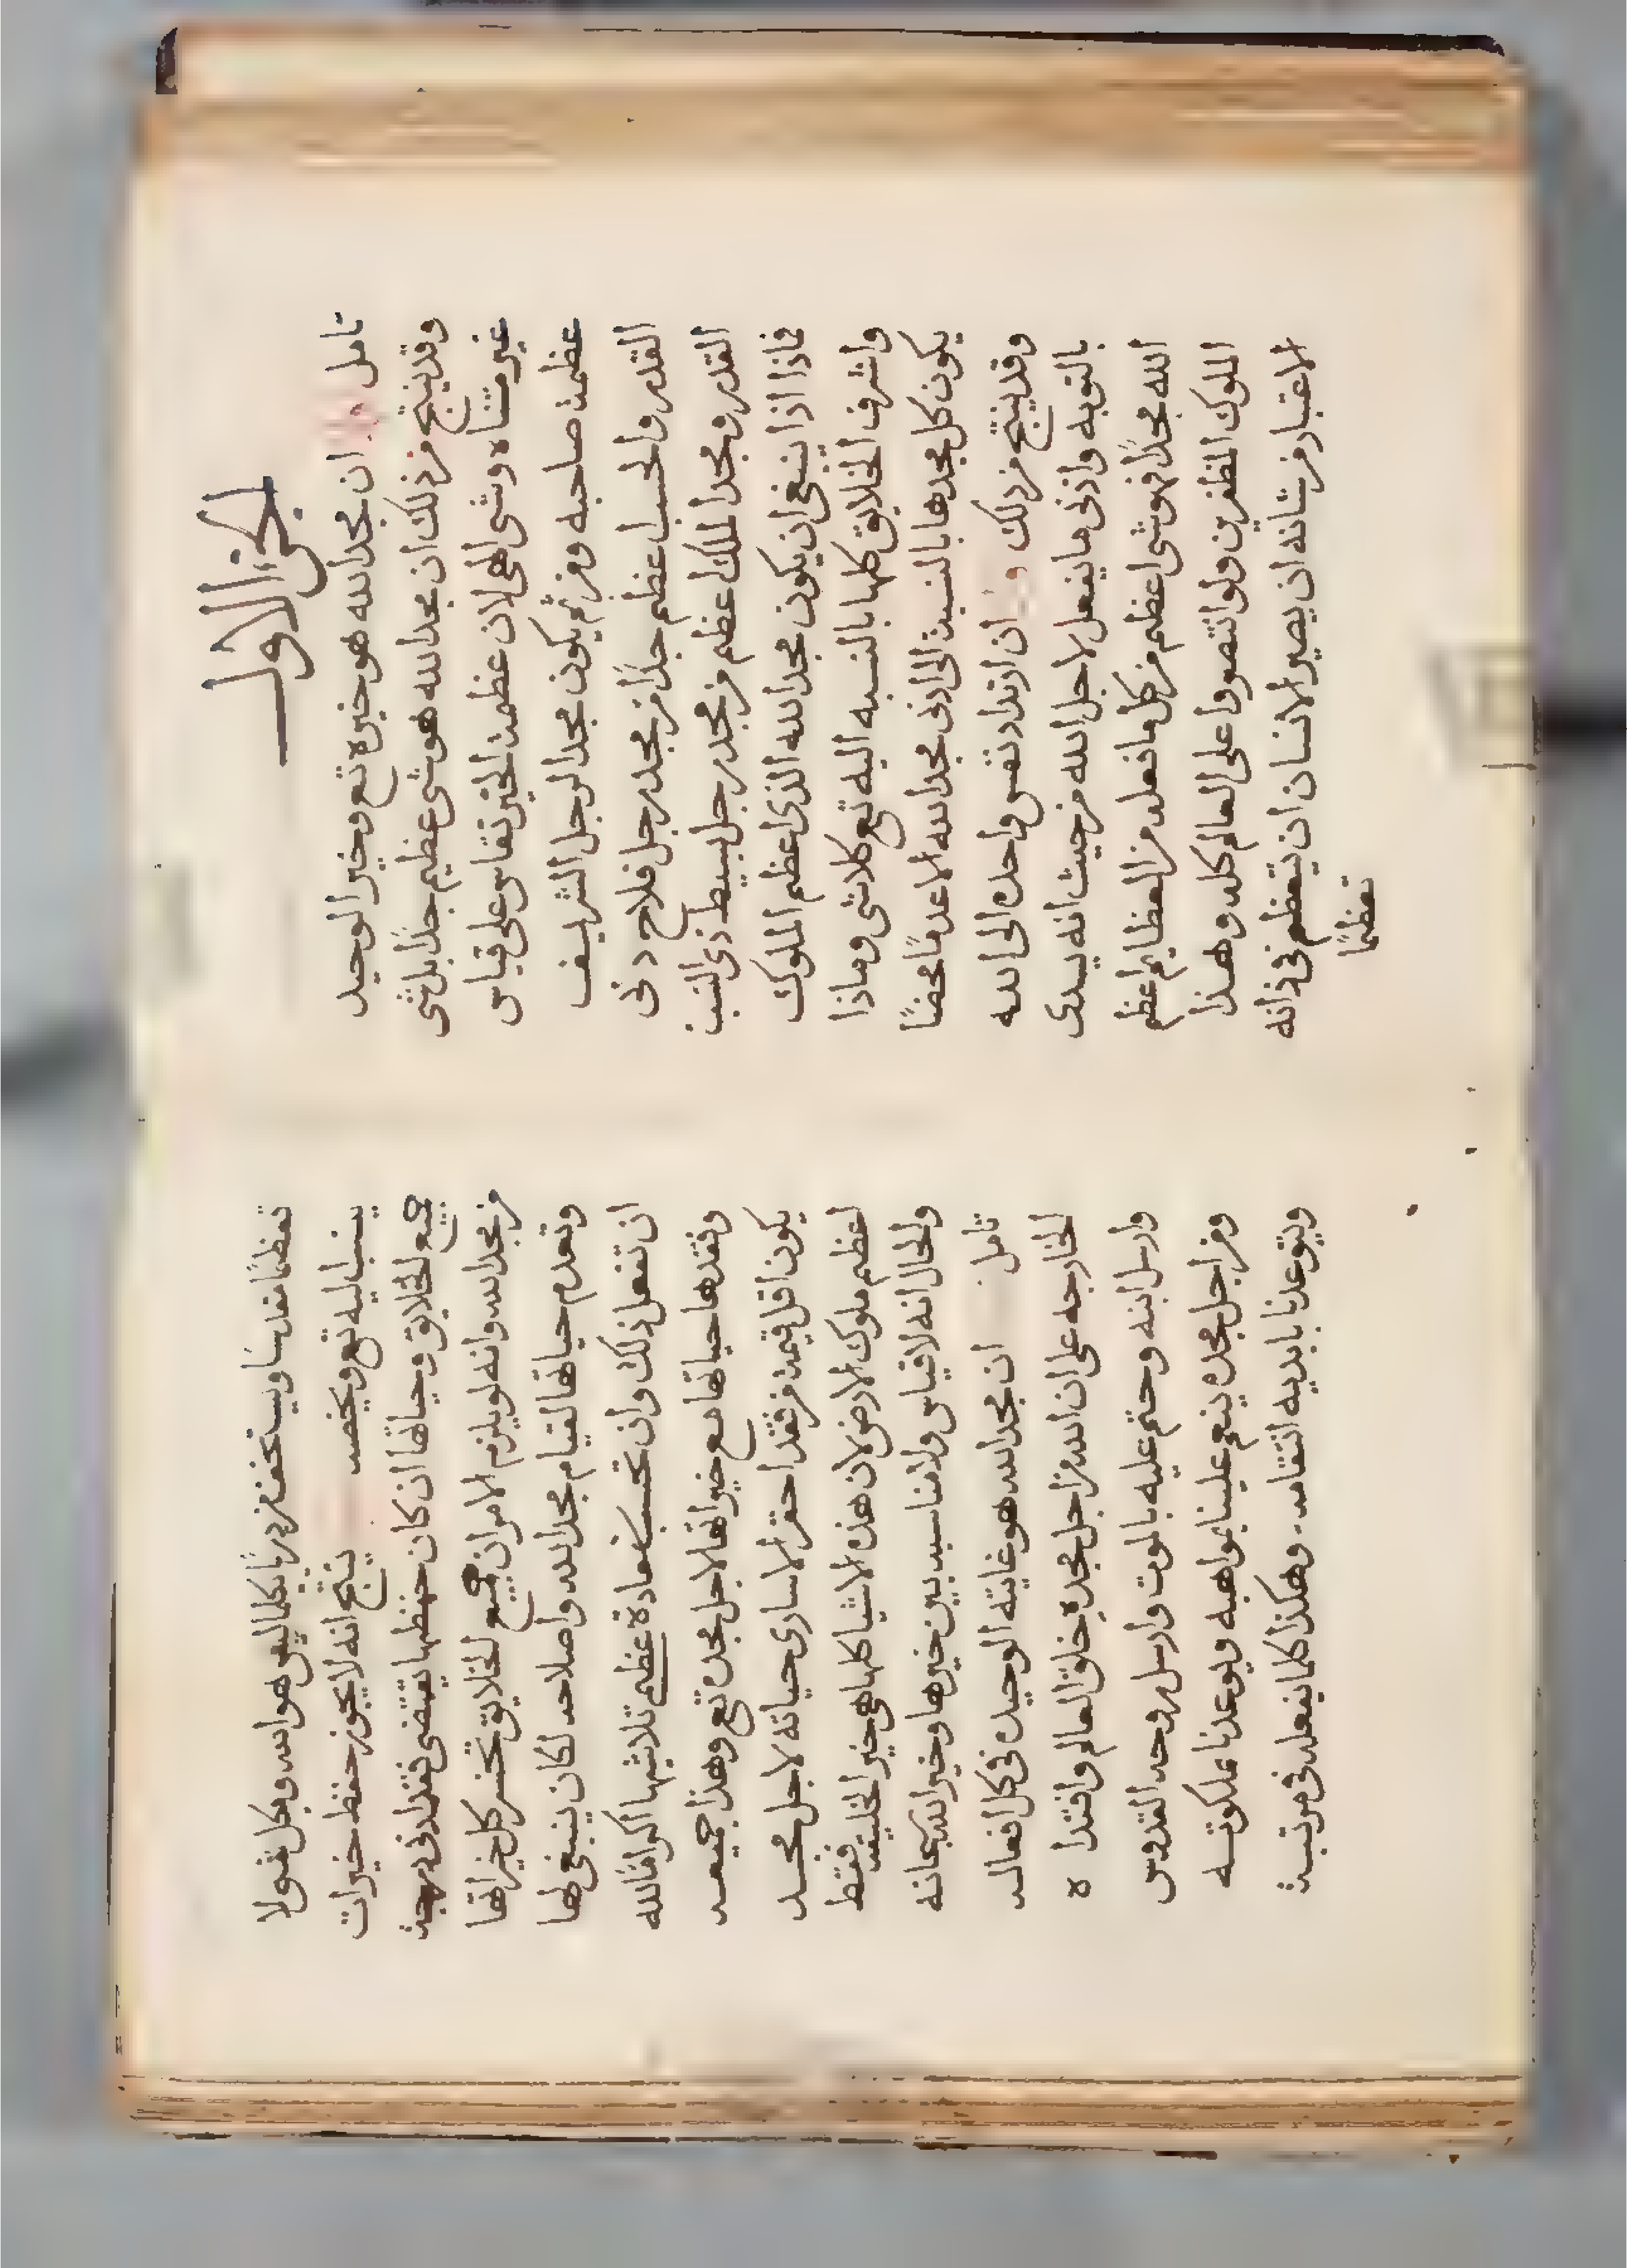 الجزء الاول
تامل ان مجد الله هو خيره تع وخير الوحيد
وقد ينتج من ذلك ان مجد الله هو شى عظيم جدًا بل شى
غير متناه وشى الهى لان عظمة الخير تقاس على قياس
عظمة صاحبه ومن ثم يكون مجد الرجل الشريف
القدر والحسب اعظم جدًا من مجد رجل فلاح دنى
القدر ومجد الملك اعظم من مجد رجل بسيط ذى النسب
فاذا اذا ينبغى ان يكون مجد الله الذى اعظم الملوك
واشرف الخلايق كلها بالنسبه اليه تع كلاشى وماذا
يكون كل مجدها بالنسبة الى ادنى مجد الله الا عدمًا محضًا
وقد ينتج من ذلك ان ارتداد نفس واحده الى الله
بالتوبه وادنى ما يفعل لاجل الله من حيث انه يسدى
الله مجدًا فهو شى اعظم من كل ما فعله من العظايم اعظم
الملوك المظفرين ولو انتصروا على العالم كله وهذا
الاعتبار من شانه ان يصير الانسان ان يتعظم فى ذاته
تعظمًا
تعظمًا مقدسًا ويستخف مزدريًا بكلما ليس هو الله وبكل شو لا
ينسب اليه تع ويخصه ينتج انه لا يجوز حفظ خيرات
جميع الخلايق وحياتها ان كان حفظها يقتضى فقد ادنى درجة
من مجد الله وانه لو يلزم الامر ان جميع الخلايق تخسر كل خيراتها
وتعدم حياتها لقيام مجد الله واصلاحه لكان ينبغى لها
ان تفعل ذلك وان تحسب سعادة عظمى تلاشيها اكرامًا لله
وفقدها حياتها مع خيراتها لاجل مجده تع وهذا جميعه
يكون اقل قيمة من فقد احقر الاسارى حياته لاجل مجد
اعظم ملوك الارض لان هذه الاشيا كلها هى خير الخليقه فقط
والحال انه لا قياس ولا مناسبه بين خيرها وخير الله سبحانه
تامل ان مجد الله هو غايته الوحيده فى كل افعاله
الخارجه على ان الله من اجل مجده خلق العالم وافتداه
وارسل ابنه وحتم عليه بالموت وارسل روحه القدوس
ومن اجل مجده ينعم علينا بمواهبه ويوعدنا بملكوته
ويتوعدنا بابديه انتقامه وهكذا كلما يفعله فى مرتبة